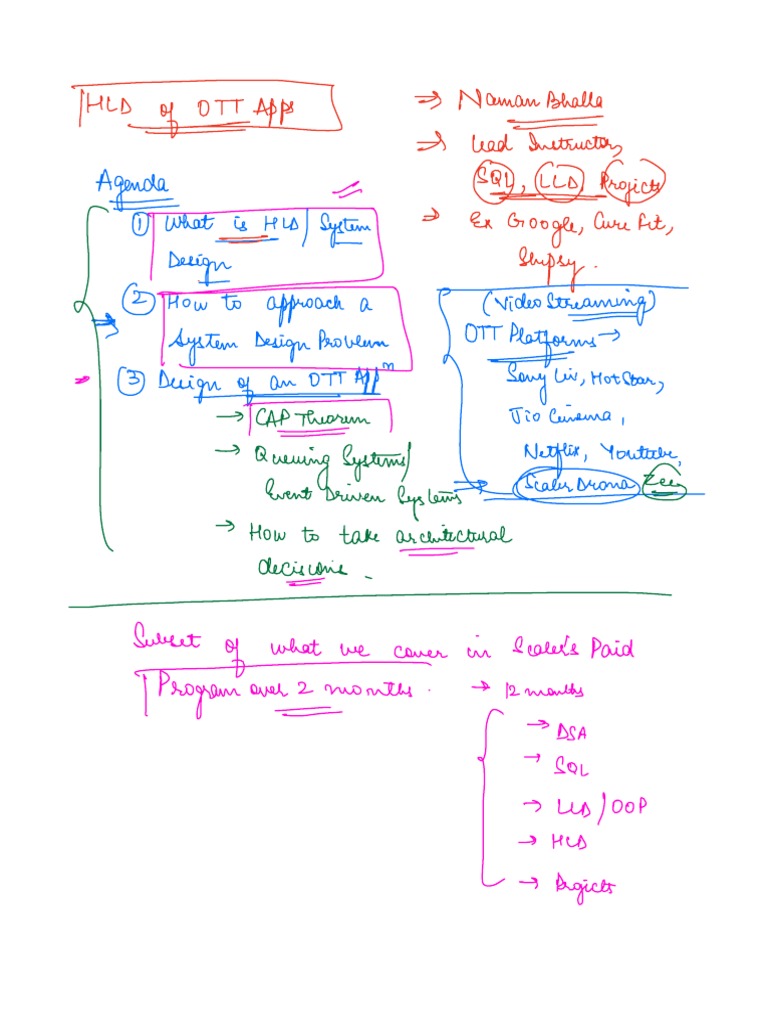 HLD of OTT Apps
→ Naman Bhalla
→ Lead Instructor,
SQL, LLD, Projects
→ Ex Google, Cure Fit,
Shipsy.
Agenda
① What is HLD / System
Design
② How to approach a
System Design Problem
③ Design of an OTT Appn
→ CAP Theorem
→ Queuing Systems/
Event Driven Systems
→ How to take architectural
decisions.
(Video Streaming)
OTT Platforms →
Sony Liv, HotStar,
Jio Cinema,
Netflix, Youtube,
Scaler Drona Zee
Subset of what we cover in Scaler's Paid
Program over 2 months. → 12 months
→ DSA
→ SQL
→ LLD/OOP
→ HLD
→ Projects